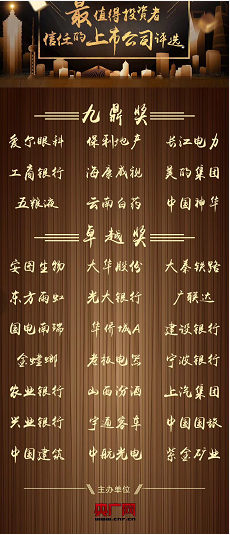 最值得投资者
信任的上市公司评选
九鼎奖
爱尔眼科 保利地产 长江电力
工商银行 海康威视 美的集团
五粮液 云南白药 中国神华
卓越奖
安图生物 大华股份 大秦铁路
东方雨虹 光大银行 广联达
国电南瑞 华侨城A 建设银行
金螳螂 老板电器 宁波银行
农业银行 山西汾酒 上汽集团
兴业银行 宇通客车 中国国旅
中国建筑 中航光电 紫金矿业
主办单位
央广网
www.cnr.cn